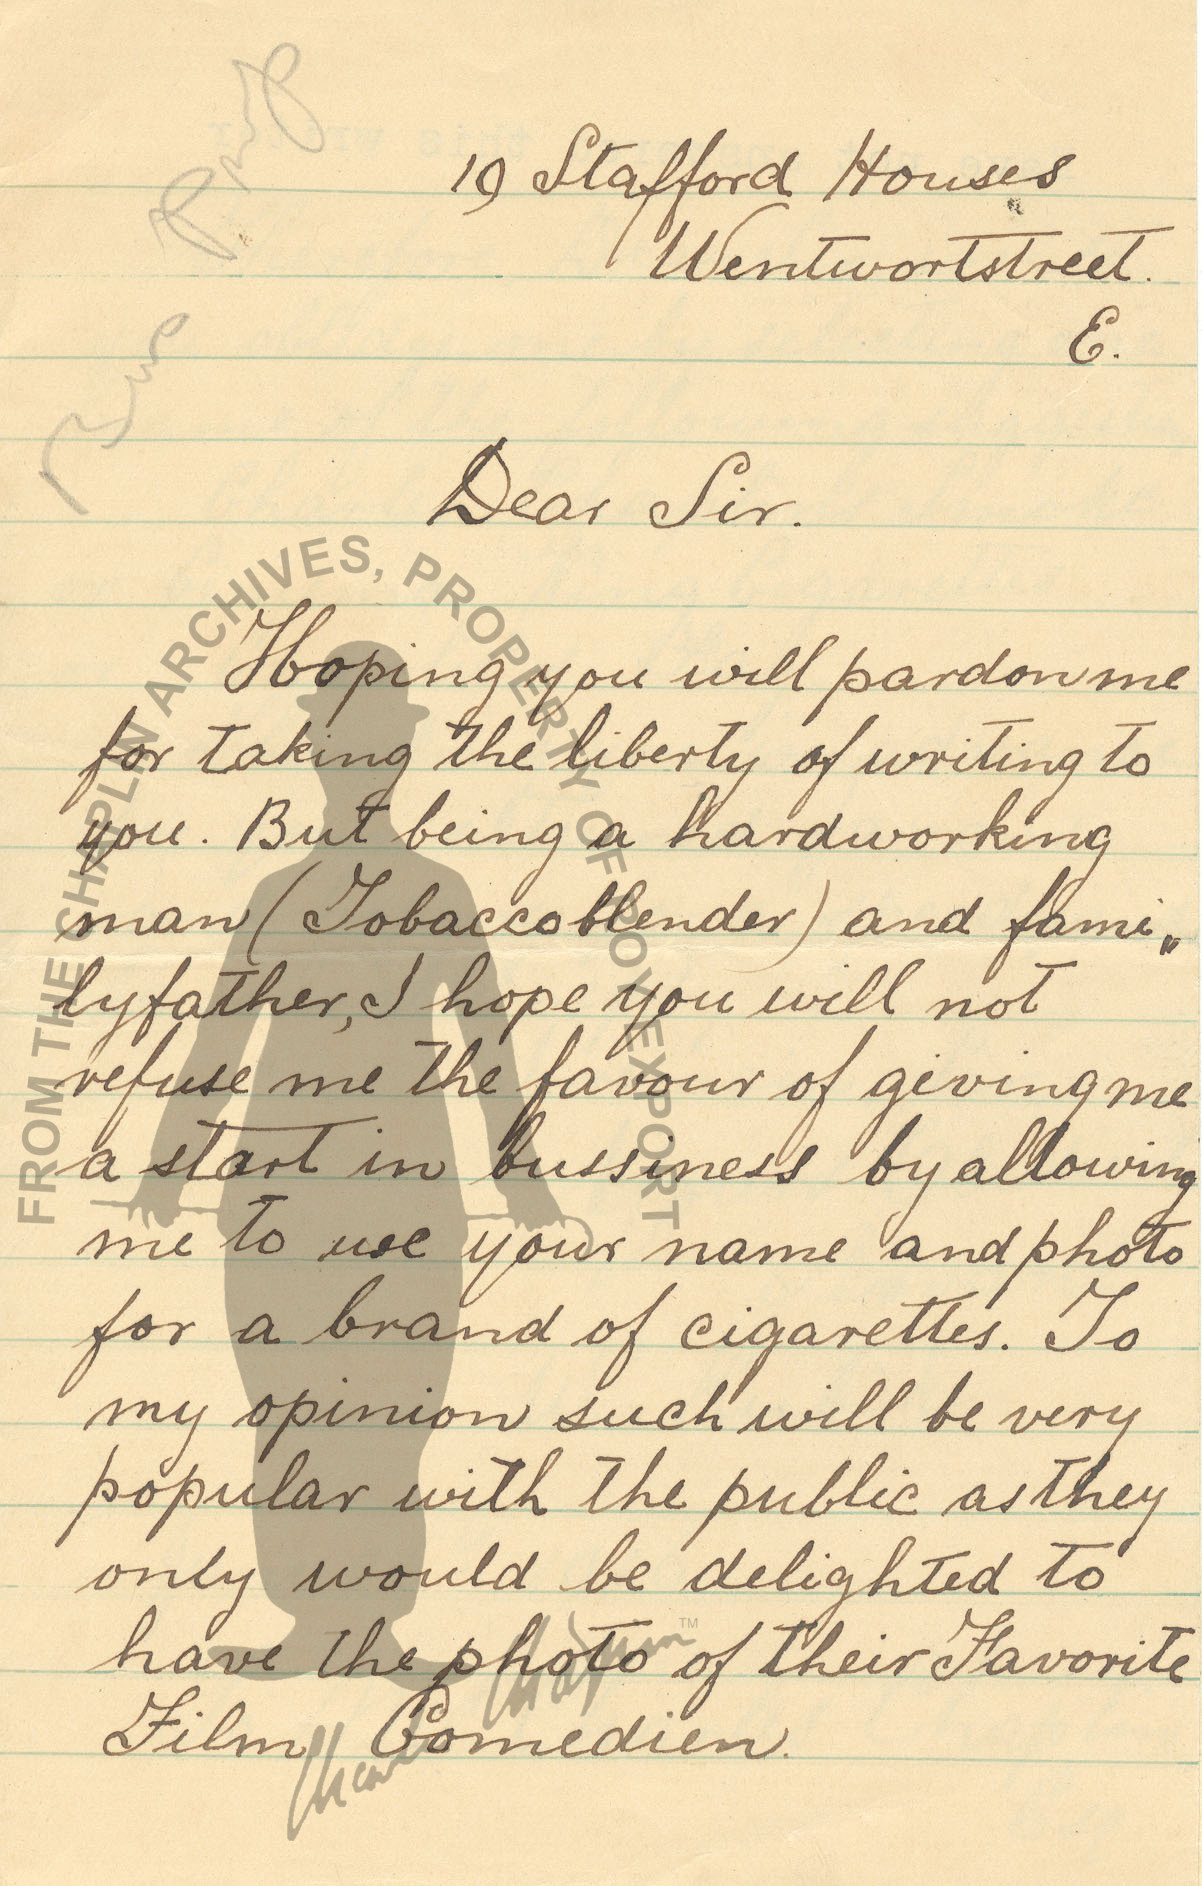 19 Stafford Houses
Wentwortstreet.
E.
Dear Sir.
Hoping you will pardon me
for taking the liberty of writing to
you. But being a hardworking
man (Tobaccoblender) and fami„
lyfather, I hope you will not
refuse me the favour of giving me
a start in bussiness by allowing
me to use your name and photo
for a brand of cigarettes. To
my opinion such will be very
popular with the public as they
only would be delighted to
have the photo of their Favorite
Film Comedien.
FROM THE CHAPLIN ARCHIVES, PROPERTY OF ROY EXPORT
Charles Chaplin™